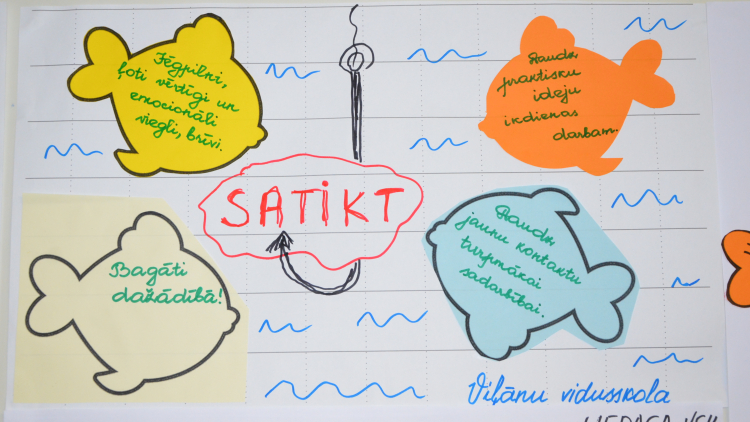 Jēgpilni,
ļoti vērtīgi un
emocionāli
viegli, brīvi.
Daudz
praktisku
ideju
ikdienas
darbam.
SATIKT
Bagāti
dažādībā!
Daudz
jaunu kontaktu
turpmākai
sadarbībai.
Viļānu vidusskola